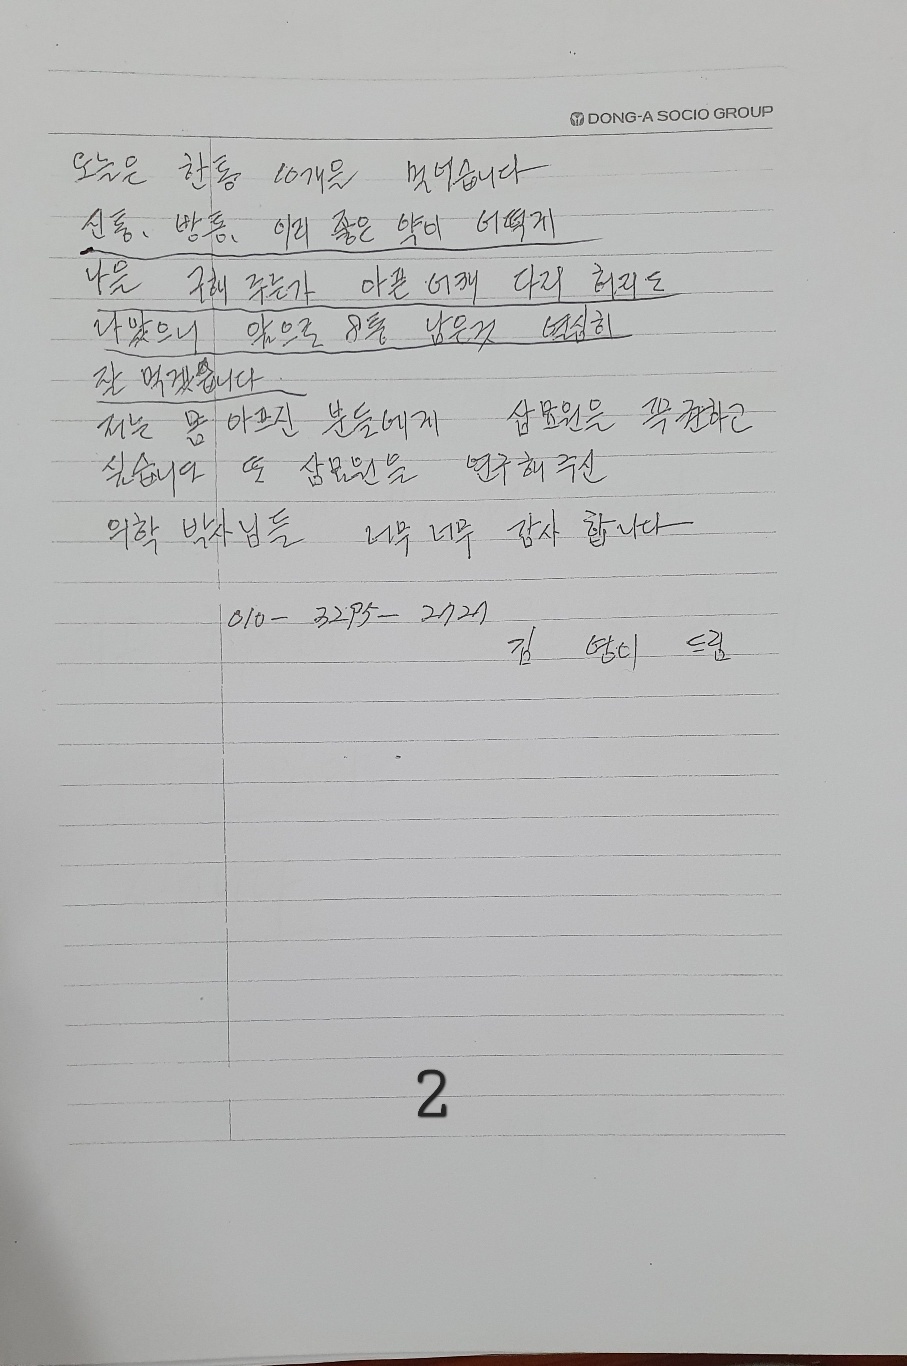 DONG-A SOCIO GROUP
오늘은 한통 10개을 먹었습니다
신통, 방통, 이리 좋은 약이 어떻게
나을 구해 주는가 아픈 어깨 다리 허리도
나았으니 앞으로 8통 남은것 열심히
잘 먹겠습니다
저는 몸 아프신 분들에게 삼묘원을 꼭 권하고
싶습니다 또 삼묘원을 연구해 주신
의학 박사님들 너무 너무 감사 합니다
010- 3295- 2727
김 드림
2